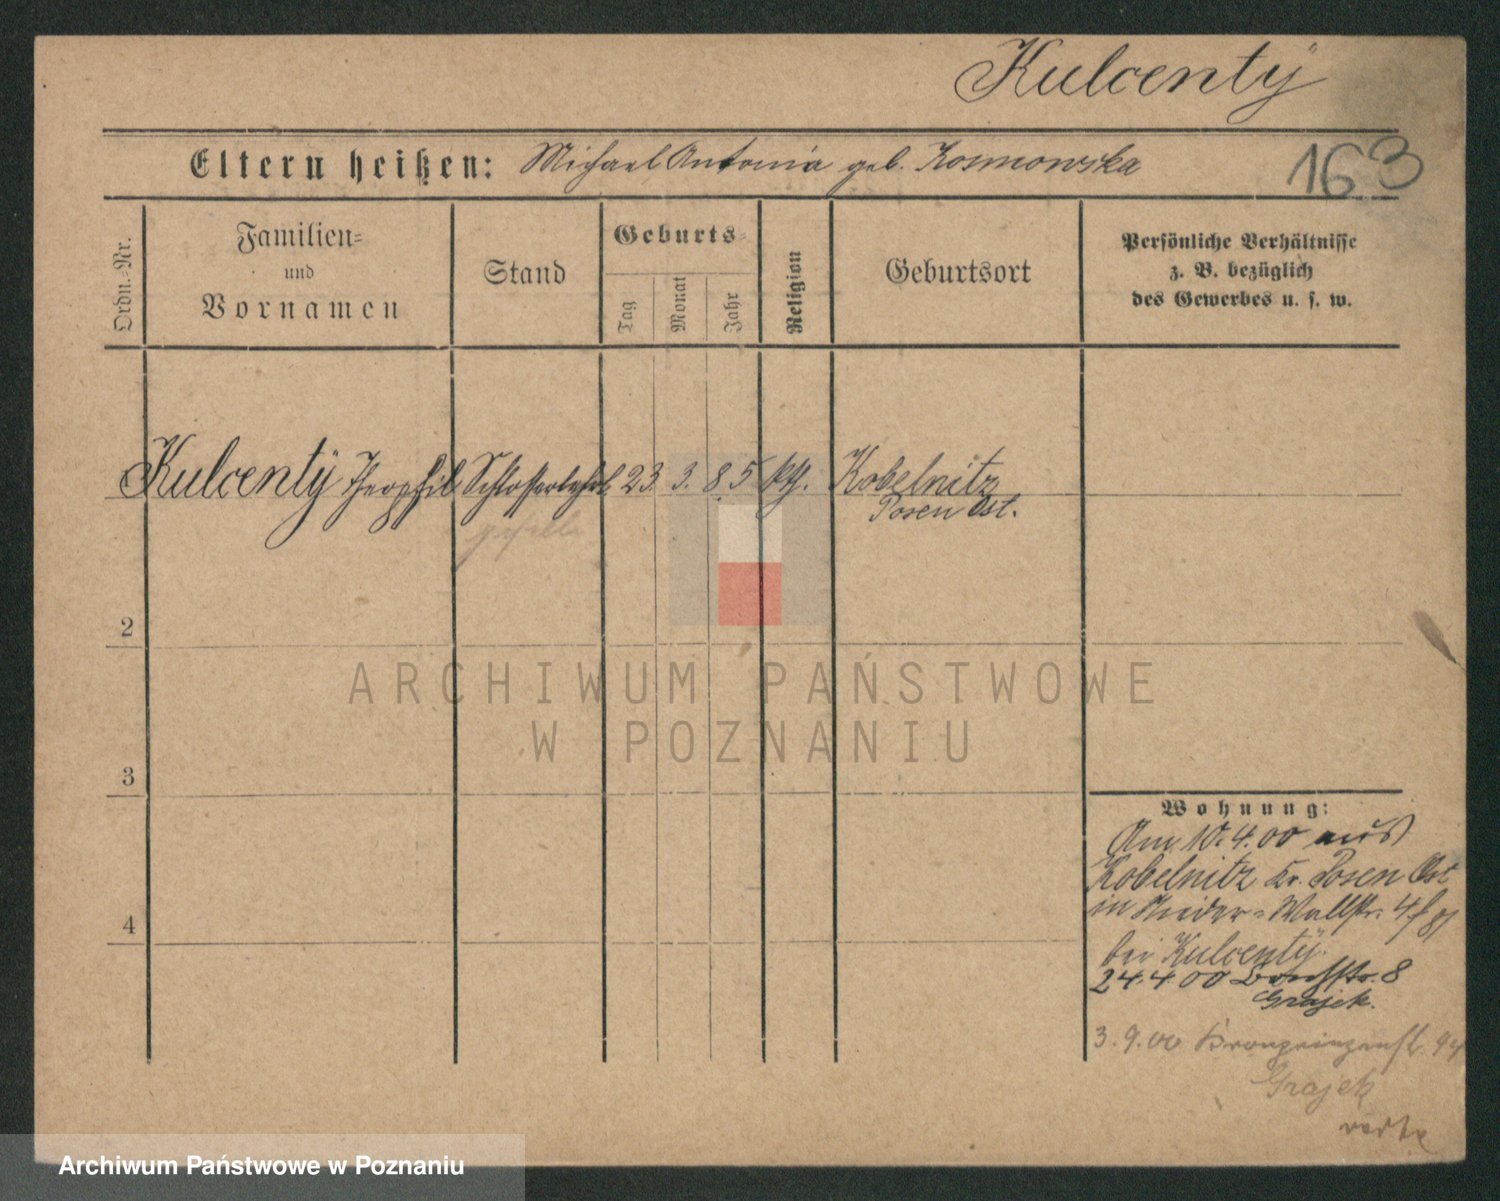 Kulcentÿ
Eltern heißen: Michael Antonia geb. Kosmowska
163
Ordn.-Nr.
Familien-
und
Vornamen
Stand
Geburts-
Tag
Monat
Jahr
Religion
Geburtsort
Persönliche Verhältnisse
z. B. bezüglich
des Gewerbes u. s. w.
Kulcentÿ Theophil Schlosserlehrl. 23 3. 85 kth. Kobelnitz
Posen Ost.
geselle
2
3
4
Wohnung:
Am 10.4.00 aus
Kobelnitz Kr. Posen Ost
in Nieder-Wallstr. 4
bei Kulcentÿ.
24.4.00 8
Grajek.
3.9.00 Kronprinzenst.
Grajek
ARCHIWUM PAŃSTWOWE
W POZNANIU
Archiwum Państwowe w Poznaniu